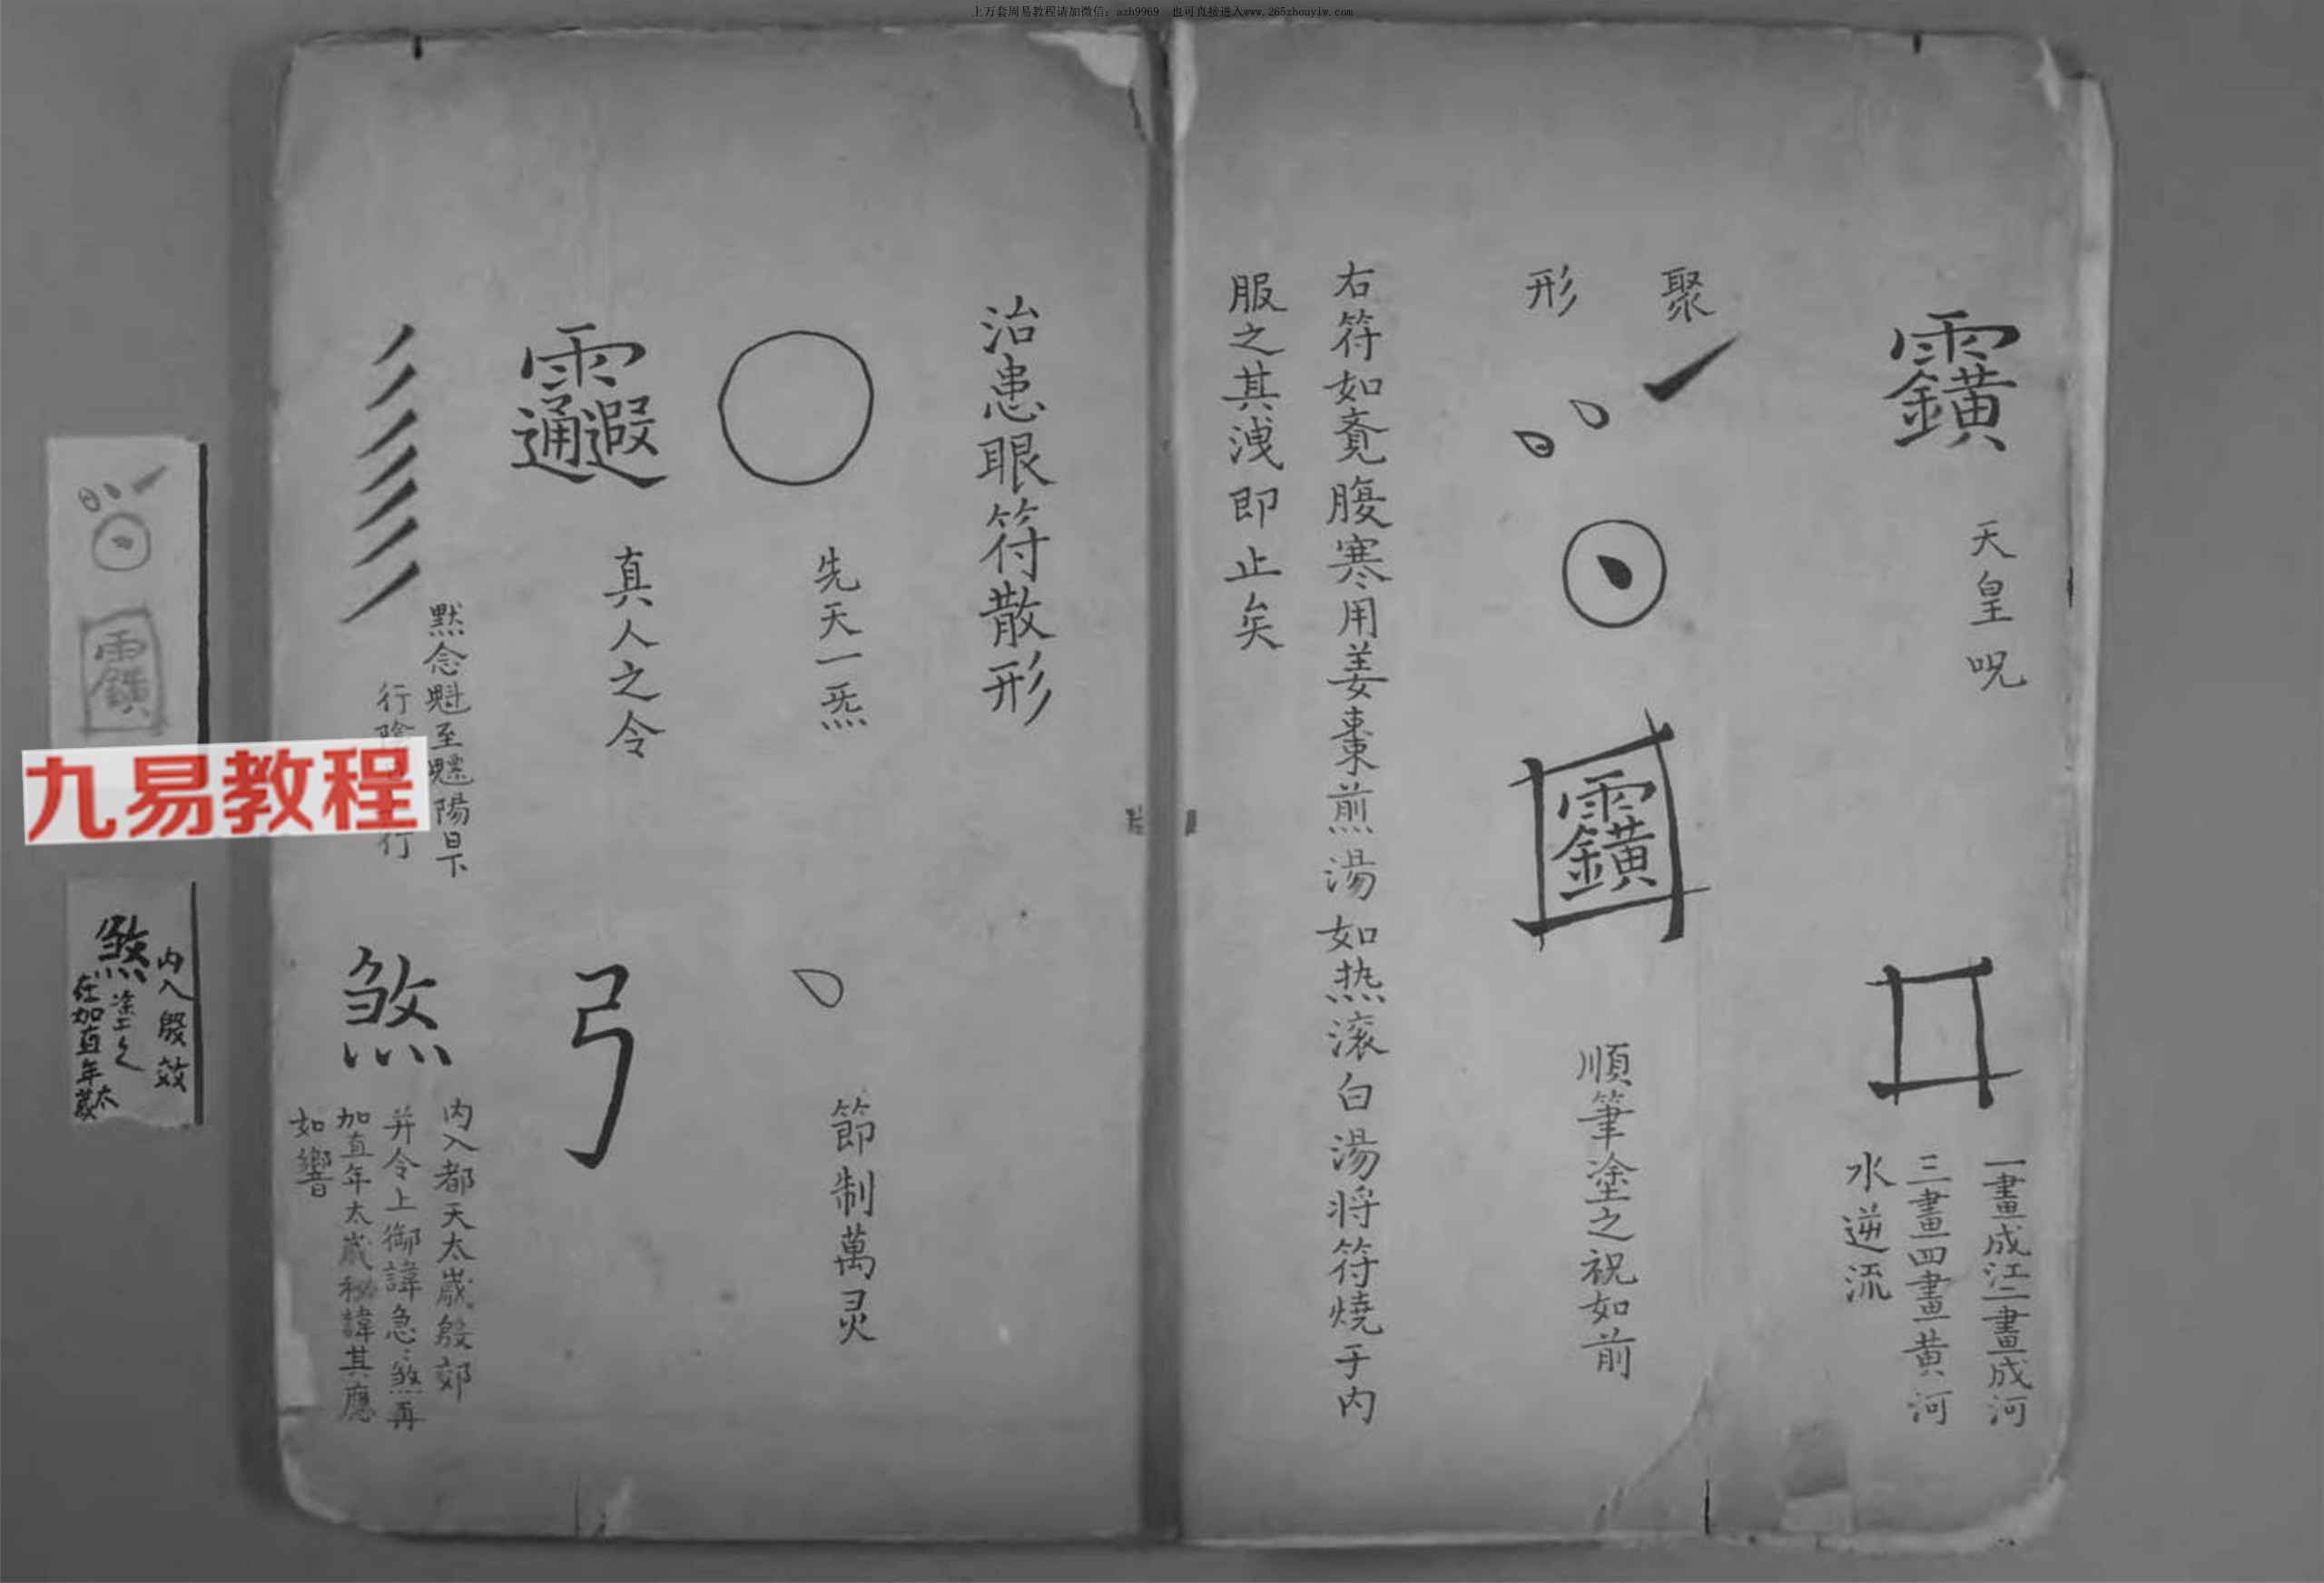 上万套周易教程请加微信：azh9969 也可直接进入www.265zhouyiw.com
天皇呪
一畫成江二畫成河
三畫四畫黄河
水逆流
聚
形
順筆塗之祝如前
右符如覔腹寒用姜棗煎湯如热滚白湯将符燒于内
服之其洩即止矣
治患眼符散形
先天一炁
節制萬灵
真人之令
弓
默念魁至魒陽日下
行陰
行
煞
内入都天太歲殷郊
并令上御諱急急煞再
加直年太歲秘諱其應
如響
九易教程
内入殷效
煞塗之
在加直年太歲